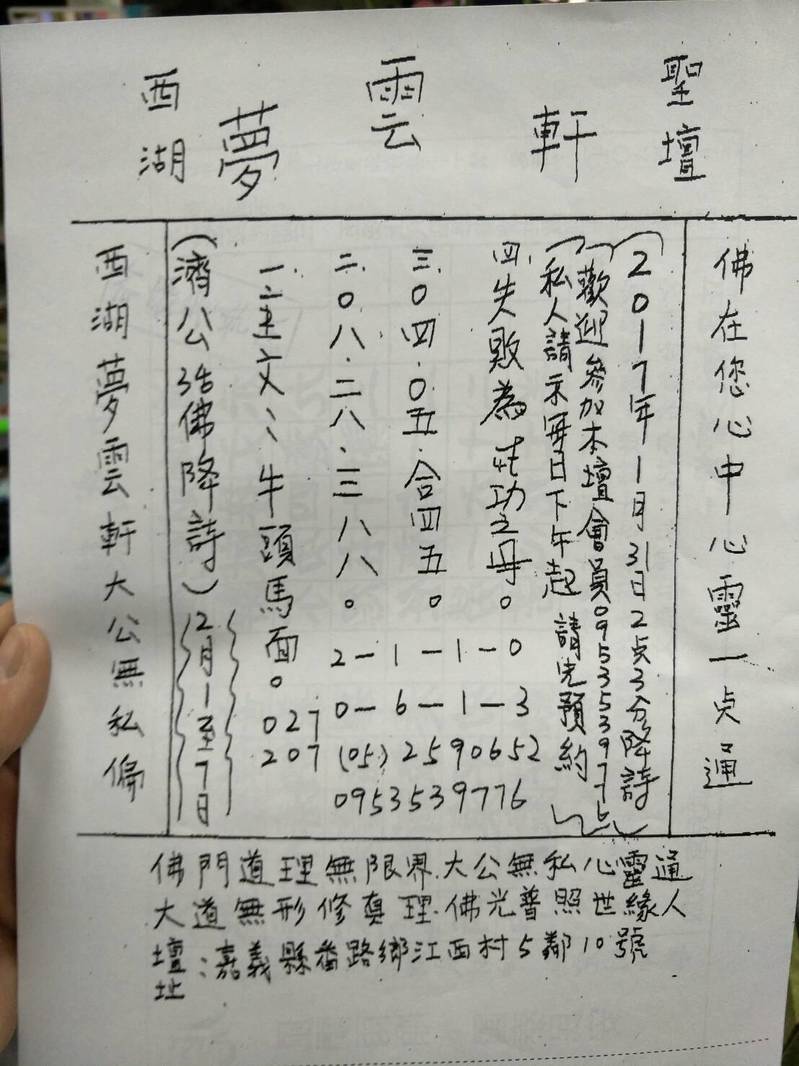 西湖夢雲軒聖壇
佛在您心中心靈一点通
(2017年1月31日2点3分降詩)
歡迎參加本壇會員0953539776
私人請示每日下午起 請先預約
四.失敗為成功之母。
三.0四.0五.合四五。
二.0八.二八.三八八。
一.主文:牛頭馬面。
(濟公活佛降詩)2月1至7日
2-1-1-0
0-6-1-3
027
207
(05)2590652
0953539776
西湖夢雲軒大公無私偏
佛門道理無限界.大公無私心靈通
大道無形修真理.佛光普照世緣人
壇址:嘉義縣番路鄉江西村5鄰10號